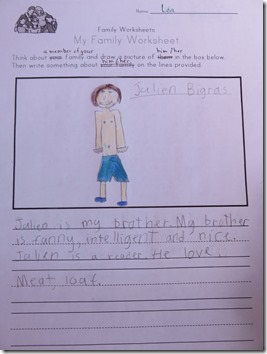 Name Léa
Family Worksheets
My Family Worksheet
a member of your him / her
Think about your family and draw a picture of them in the box below.
him / her
Then write something about your family on the lines provided.
Julien Bigras
Julien is my brother. My brother
is fanny, intelligent and nice.
Julien is a reader. He love :
Meat, loaf.